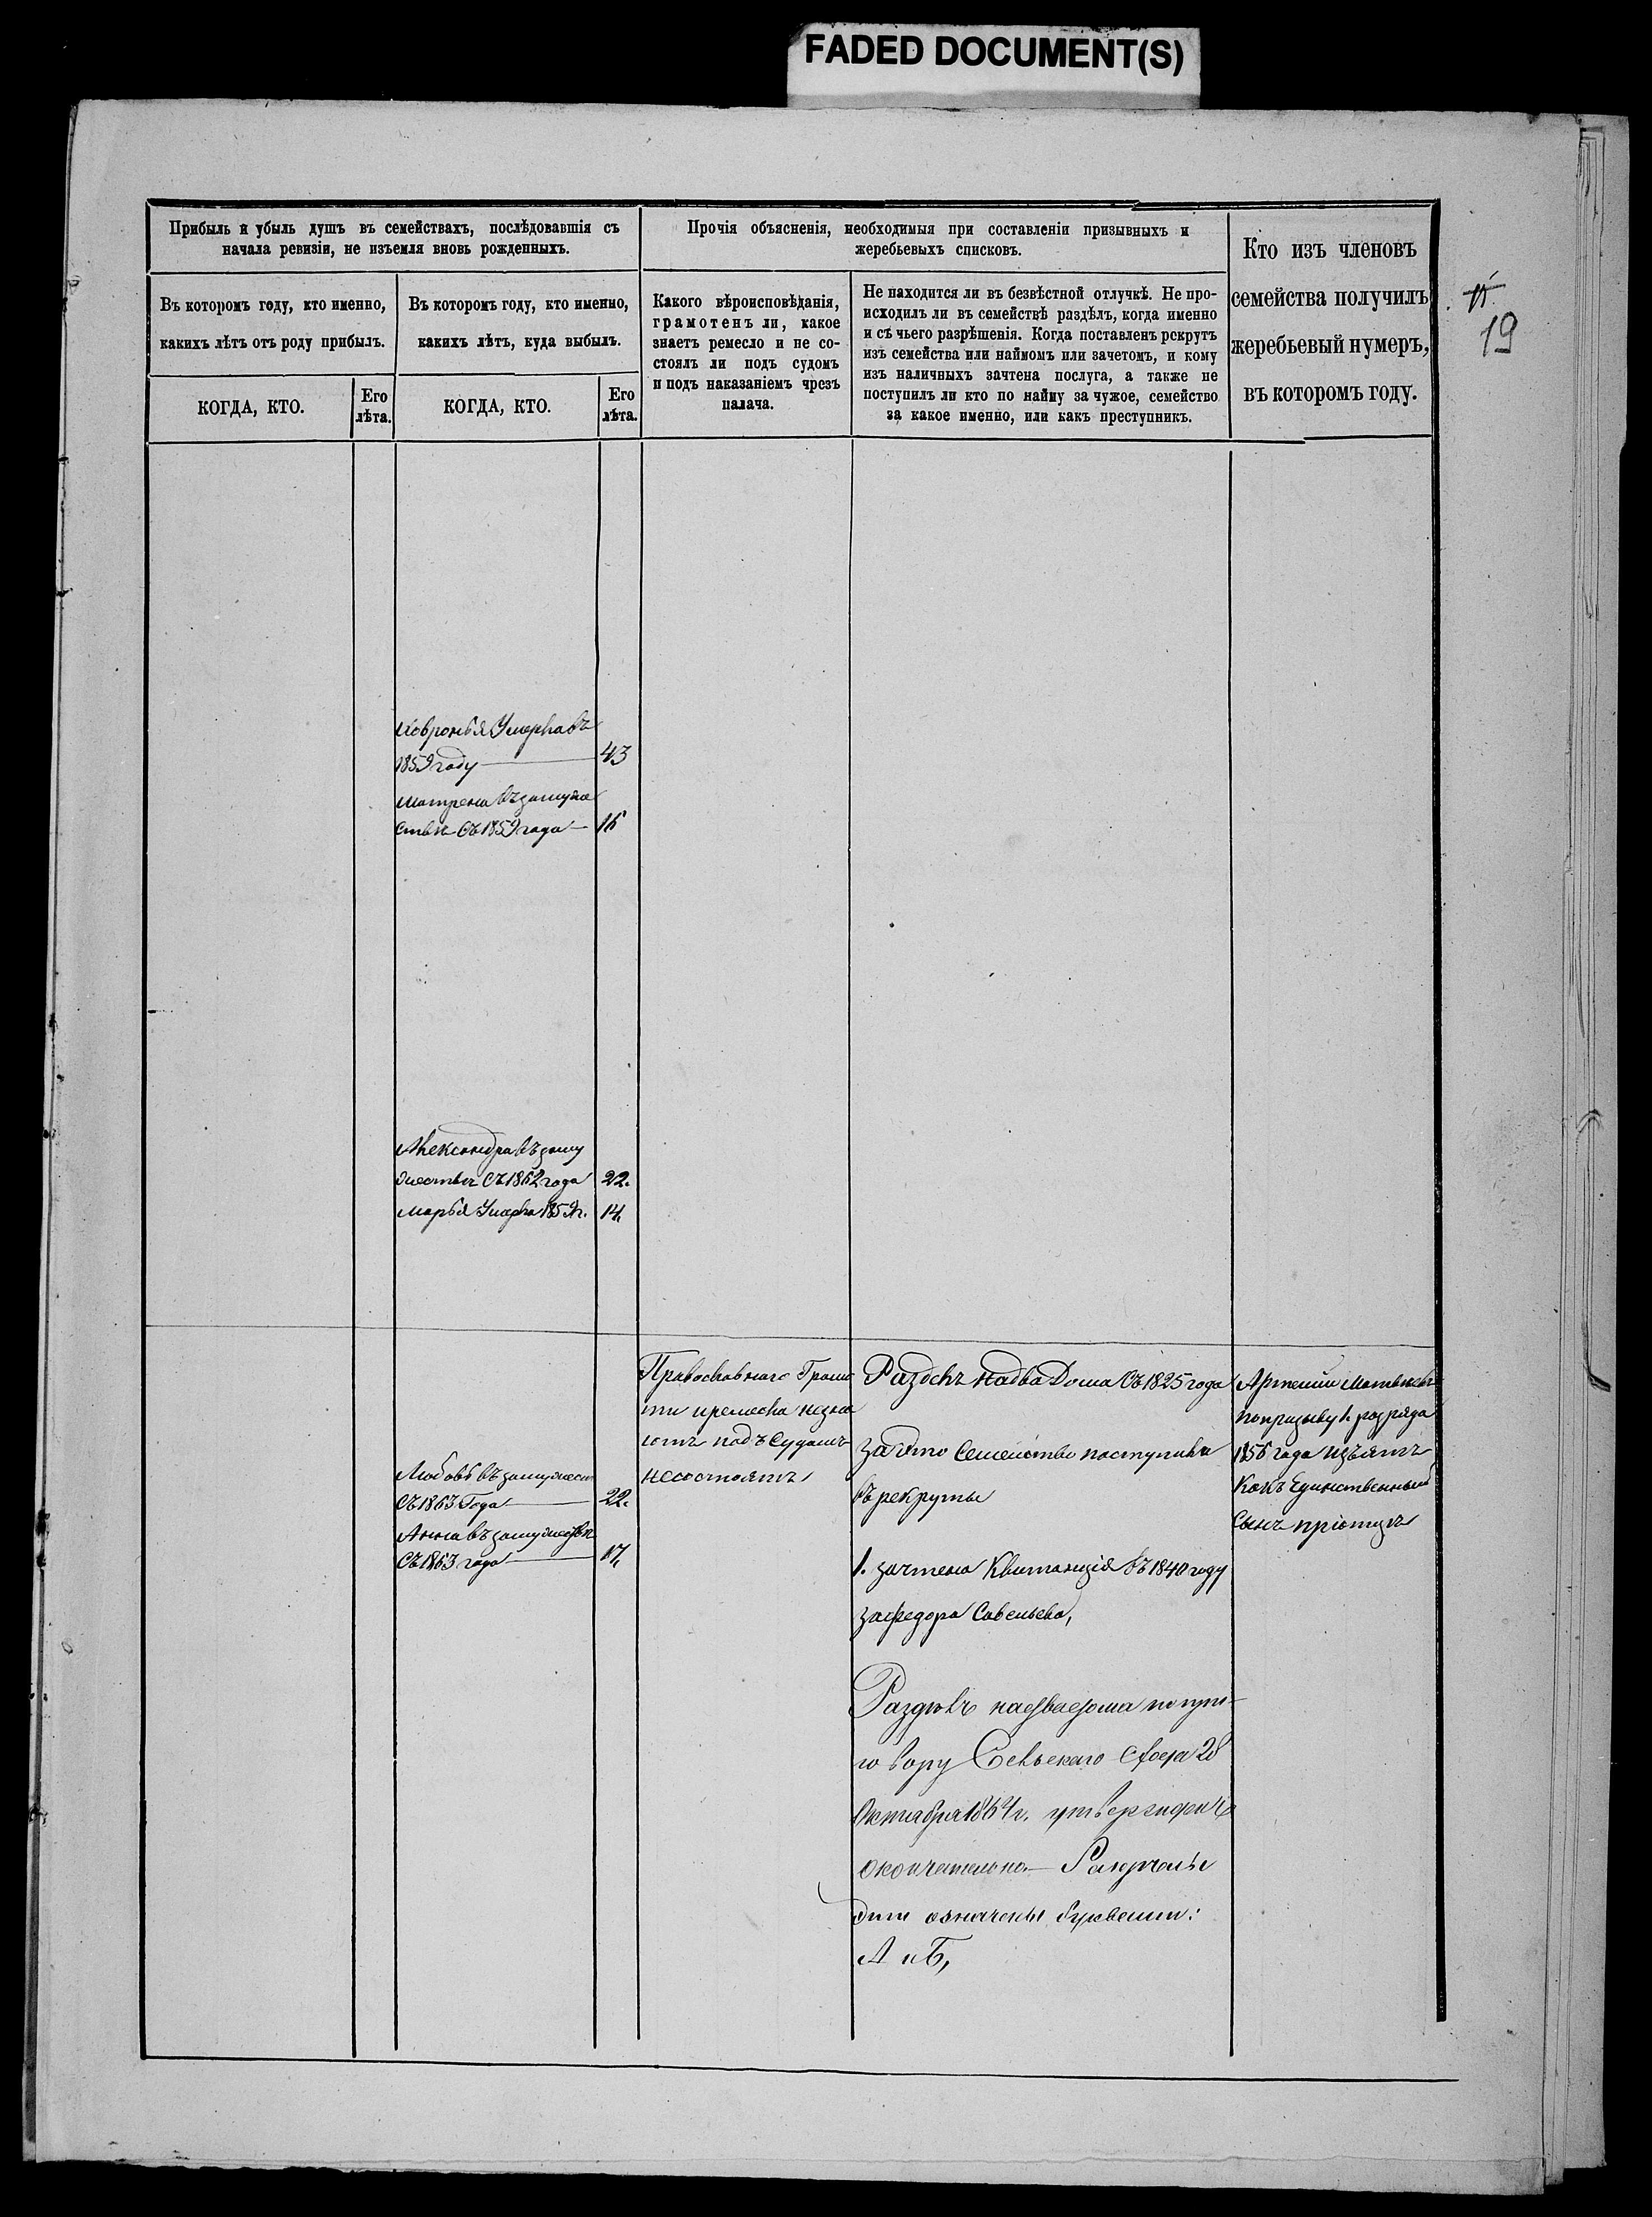 FADED DOCUMENT(S)
Прибыль и убыль душъ въ семействахъ, послѣдовавшія съ
начала ревизіи, не изъемля вновь рожденныхъ.
Прочія объясненія, необходимыя при составленіи призывныхъ и
жеребьевыхъ списковъ.
Кто изъ членовъ
семейства получилъ
жеребьевый нумеръ,
въ которомъ году.
19
Въ которомъ году, кто именно,
какихъ лѣтъ отъ роду прибылъ.
Въ которомъ году, кто именно,
какихъ лѣтъ, куда выбылъ.
Какого вѣроисповѣданія,
грамотенъ ли, какое
знаетъ ремесло и не со-
стоялъ ли подъ судомъ
и подъ наказаніемъ чрезъ
палача.
Не находится ли въ безвѣстной отлучкѣ. Не про-
исходилъ ли въ семействѣ раздѣлъ, когда именно
и съ чьего разрѣшенія. Когда поставленъ рекрутъ
изъ семейства или наймомъ или зачетомъ, и кому
изъ наличныхъ зачтена послуга, а также не
поступилъ ли кто по найму за чужое, семейство
за какое именно, или какъ преступникъ.
КОГДА, КТО.
Его
лѣта.
КОГДА, КТО.
Его
лѣта.
Ховронья Умерла въ
1859 году 43
Матрена въ замуже
ствѣ Съ 1859 года 16
Александра въ заму
жествѣ Съ 1862 года 22.
Марья Умерла 1859 г. 14.
Любовь въ замужест
Съ 1863 Года 22.
Анна въ замужествѣ
Съ 1863 года 17,
Православнаго Грамо
ти иремесла незна
ютъ подъ Судомъ
несостоятъ
Раздѣлъ надва Дома Съ 1825 года
за это Семейство поступива
въ рекруты
1. зачтена Квитанція въ 1840 году
зафедора Савельева,
Раздѣлъ надвадома по при-
говору Сельскаго Схода 28
Октября 1864 г. утвержденъ
окончательно.
означены буквами:
А и Б,
Артемий Матвѣевъ
попризыву 1. разряда
1856 года изъятъ
Какъ Единственный
Сынъ при отцѣ